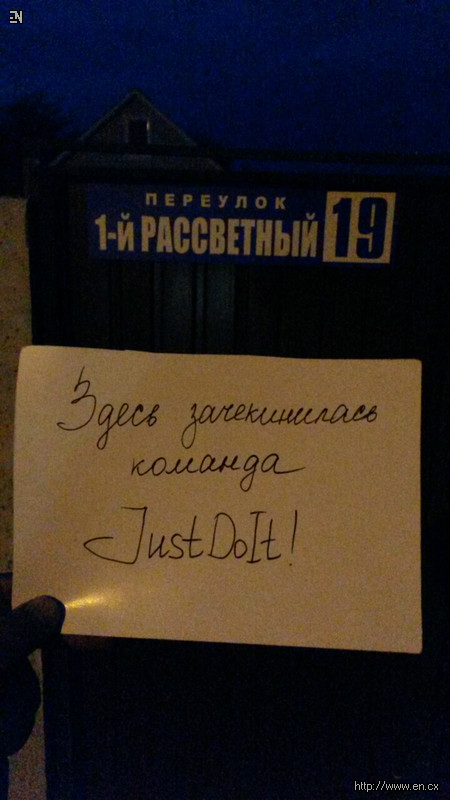 EN
ПЕРЕУЛОК
1-й РАССВЕТНЫЙ 19
Здесь зачекинилась
команда
JustDoIt!
http://www.en.cx